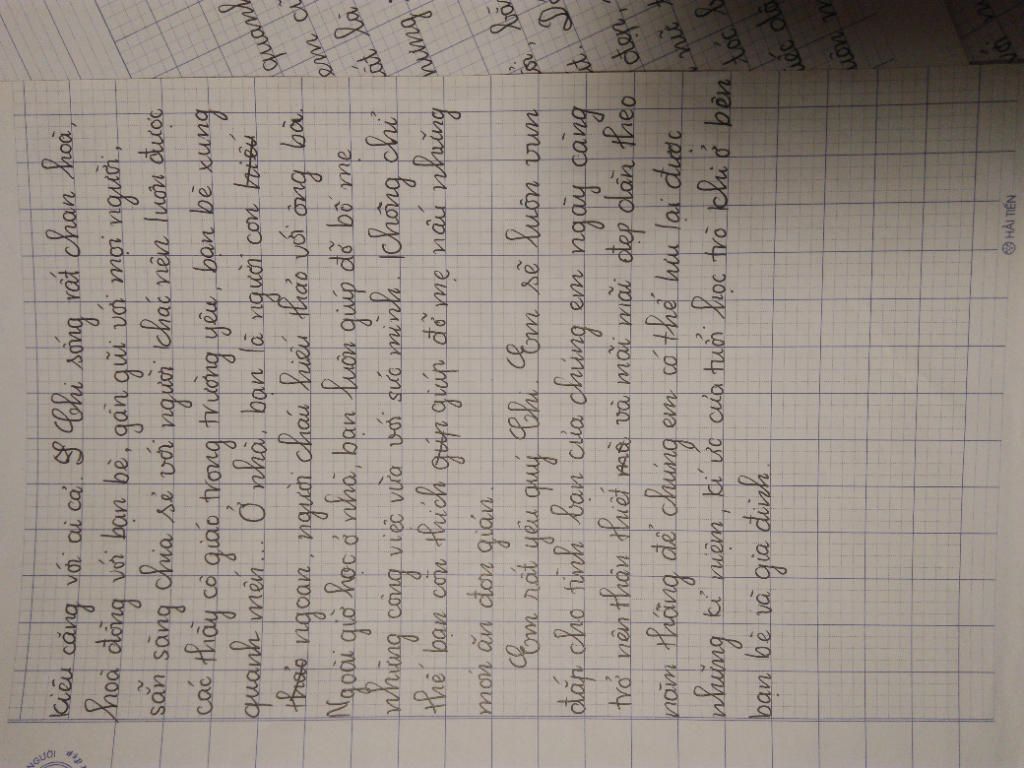 kiêu căng với ai cả. Chi sống rất chan hoà,
hoà đồng với bạn bè, gần gũi với mọi người,
sẵn sàng chia sẻ với người khác nên luôn được
các thầy cô giáo trong trường yêu, bạn bè xung
quanh mến... Ở nhà, bạn là người con hiếu
thảo ngoan, người cháu hiếu thảo với ông bà.
Ngoài giờ học ở nhà, bạn luôn giúp đỡ bố mẹ
những công việc vừa với sức mình. Không chỉ
thế bạn còn thích giúp giúp đỡ mẹ nấu những
món ăn đơn giản.
Em rất yêu quý Chi. Em sẽ luôn vun
đắp cho tình bạn của chúng em ngày càng
trở nên thân thiết mà và mãi mãi đẹp dần theo
năm tháng để chúng em có thể lưu lại được
những kỉ niệm, kí ức của tuổi học trò khi ở bên
bạn bè và gia đình.
HẢI TIẾN
quanh
em
nung
đẹp,
tóc
NGƯỜI